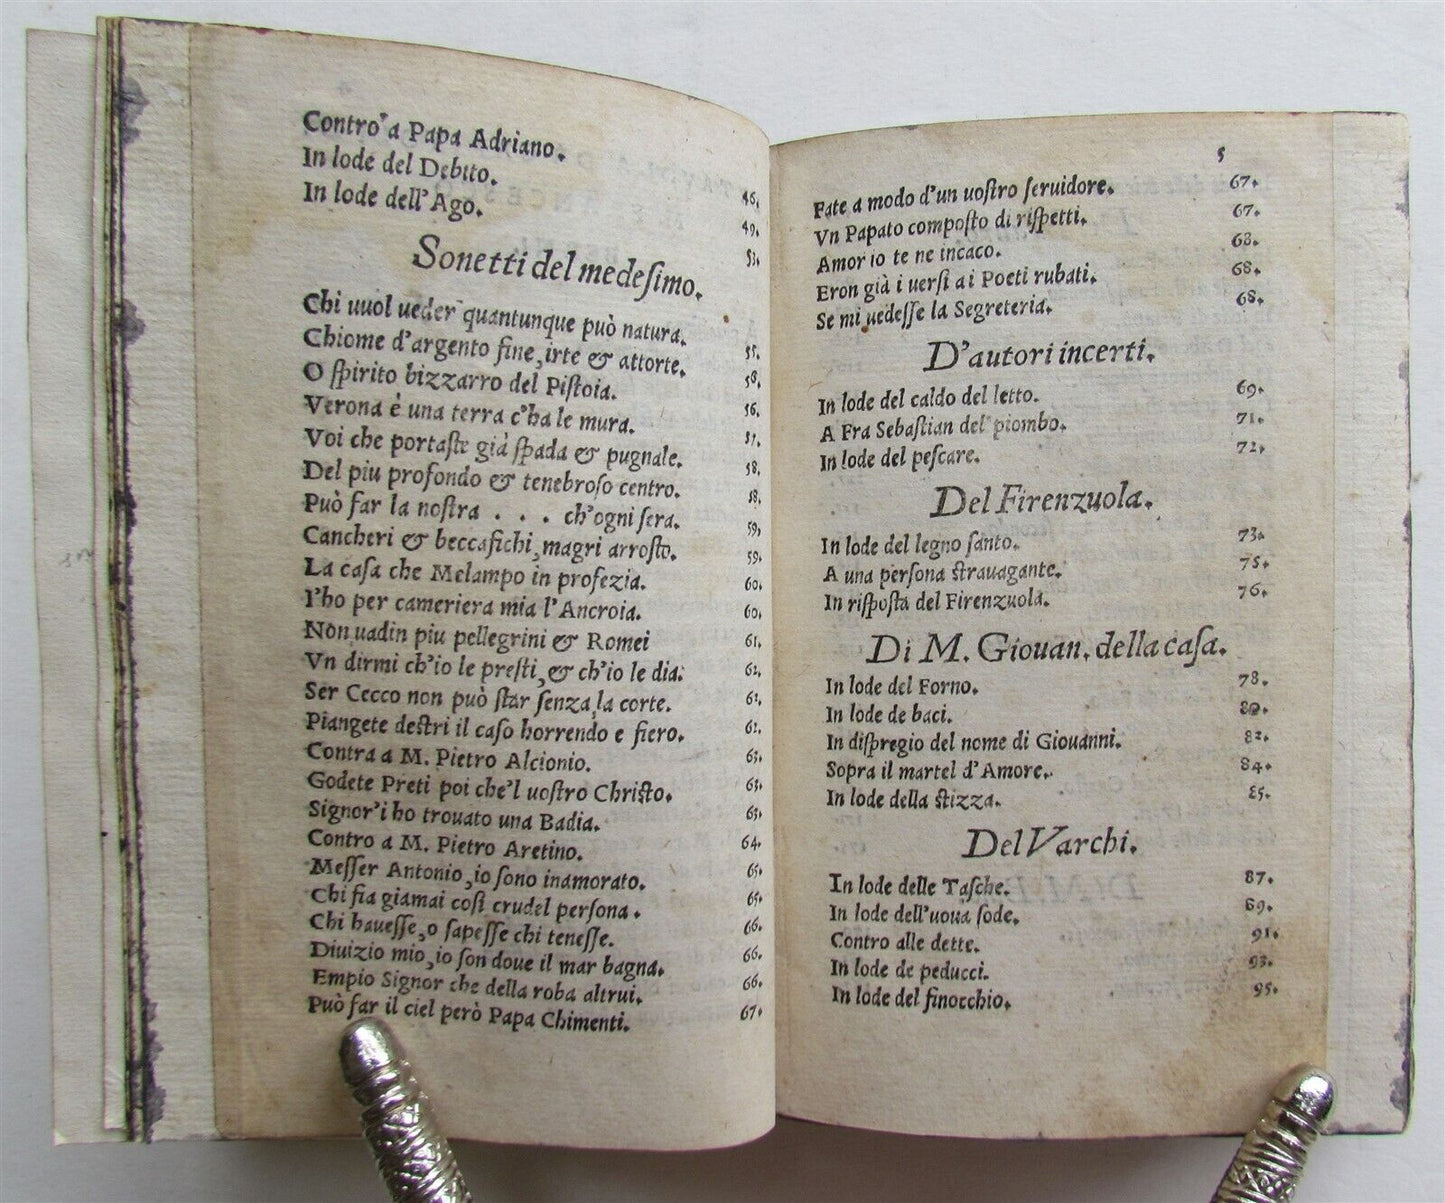 Contro a Papa Adriano. 46.
In lode del Debito. 49.
In lode dell'Ago. 53.
Sonetti del medeſimo.
Chi uuol ueder quantunque può natura. 55.
Chiome d'argento fine, irte & attorte. 58.
O ſpirito bizzarro del Piſtoia. 56.
Verona è una terra c'ha le mura. 57.
Voi che portaſte già ſpada & pugnale. 58.
Del piu profondo & tenebroſo centro. 58.
Può far la noſtra . . . ch'ogni ſera. 59.
Cancheri & beccafichi, magri arroſto. 59.
La caſa che Melampo in profezia. 60.
I'ho per cameriera mia l'Ancroia. 60.
Non uadin piu pellegrini & Romei 61.
Vn dirmi ch'io le preſti, & ch'io le dia. 62.
Ser Cecco non può ſtar ſenza la corte. 62.
Piangete deſtri il caſo horrendo e fiero. 62.
Contra a M. Pietro Alcionio. 63.
Godete Preti poi che'l uoſtro Chriſto. 63.
Signor'i ho trouato una Badia. 63.
Contro a M. Pietro Aretino. 64.
Meſſer Antonio, io ſono inamorato. 65.
Chi fia giamai coſi crudel perſona. 65.
Chi haueſſe, o ſapeſſe chi teneſſe. 66.
Diuizio mio, io ſon doue il mar bagna. 66.
Empio Signor che della roba altrui. 66.
Può far il ciel però Papa Chimenti. 67.
5
Fate a modo d'un uoſtro ſeruidore. 67.
Vn Papato compoſto di riſpetti. 67.
Amor io te ne incaco. 68.
Eron già i uerſi a i Poeti rubati. 68.
Se mi uedeſſe la Segreteria. 68.
D'autori incerti.
In lode del caldo del letto. 69.
A Fra Sebaſtian del piombo. 71.
In lode del peſcare. 72.
Del Firenzuola.
In lode del legno ſanto. 73.
A una perſona ſtrauagante. 75.
In riſpoſta del Firenzuola. 76.
Di M. Giouan. della caſa.
In lode del Forno. 78.
In lode de baci. 80.
In diſpregio del nome di Giouanni. 82.
Sopra il martel d'Amore. 84.
In lode della ſtizza. 85.
Del Varchi.
In lode delle Taſche. 87.
In lode dell'uoua ſode. 89.
Contro alle dette. 91.
In lode de peducci. 93.
In lode del finocchio. 95.